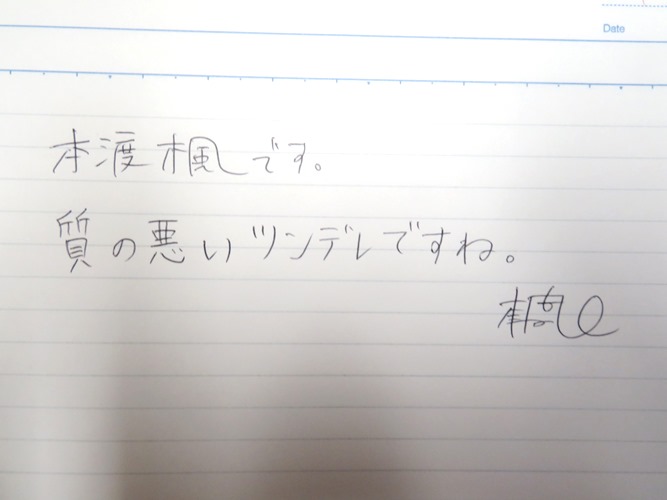 Date
本渡楓です。
質の悪いツンデレですね。